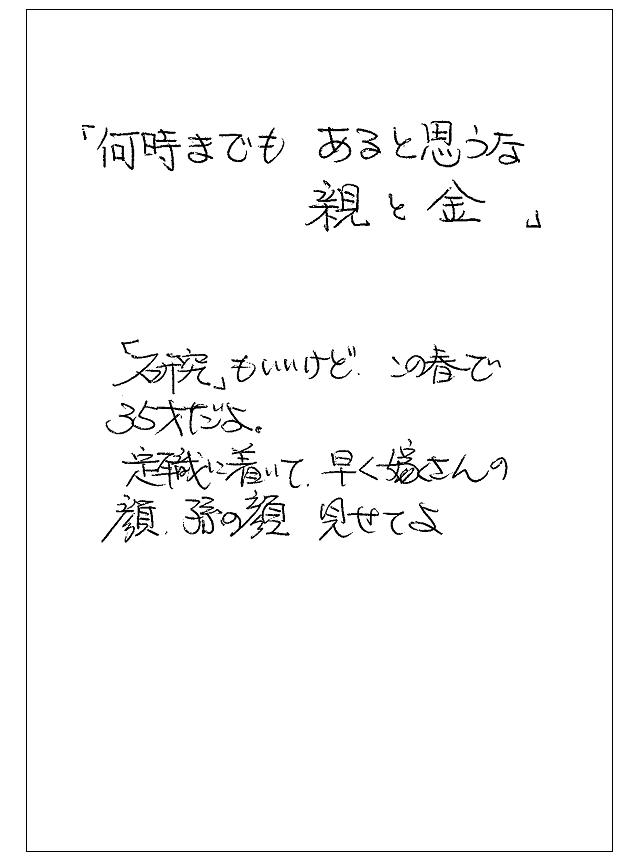 「何時までも あると思うな
親と金 」
「研究」もいいけど、この春で
35才だよ。
定職に着いて、早く嫁さんの
顔、孫の顔 見せてよ